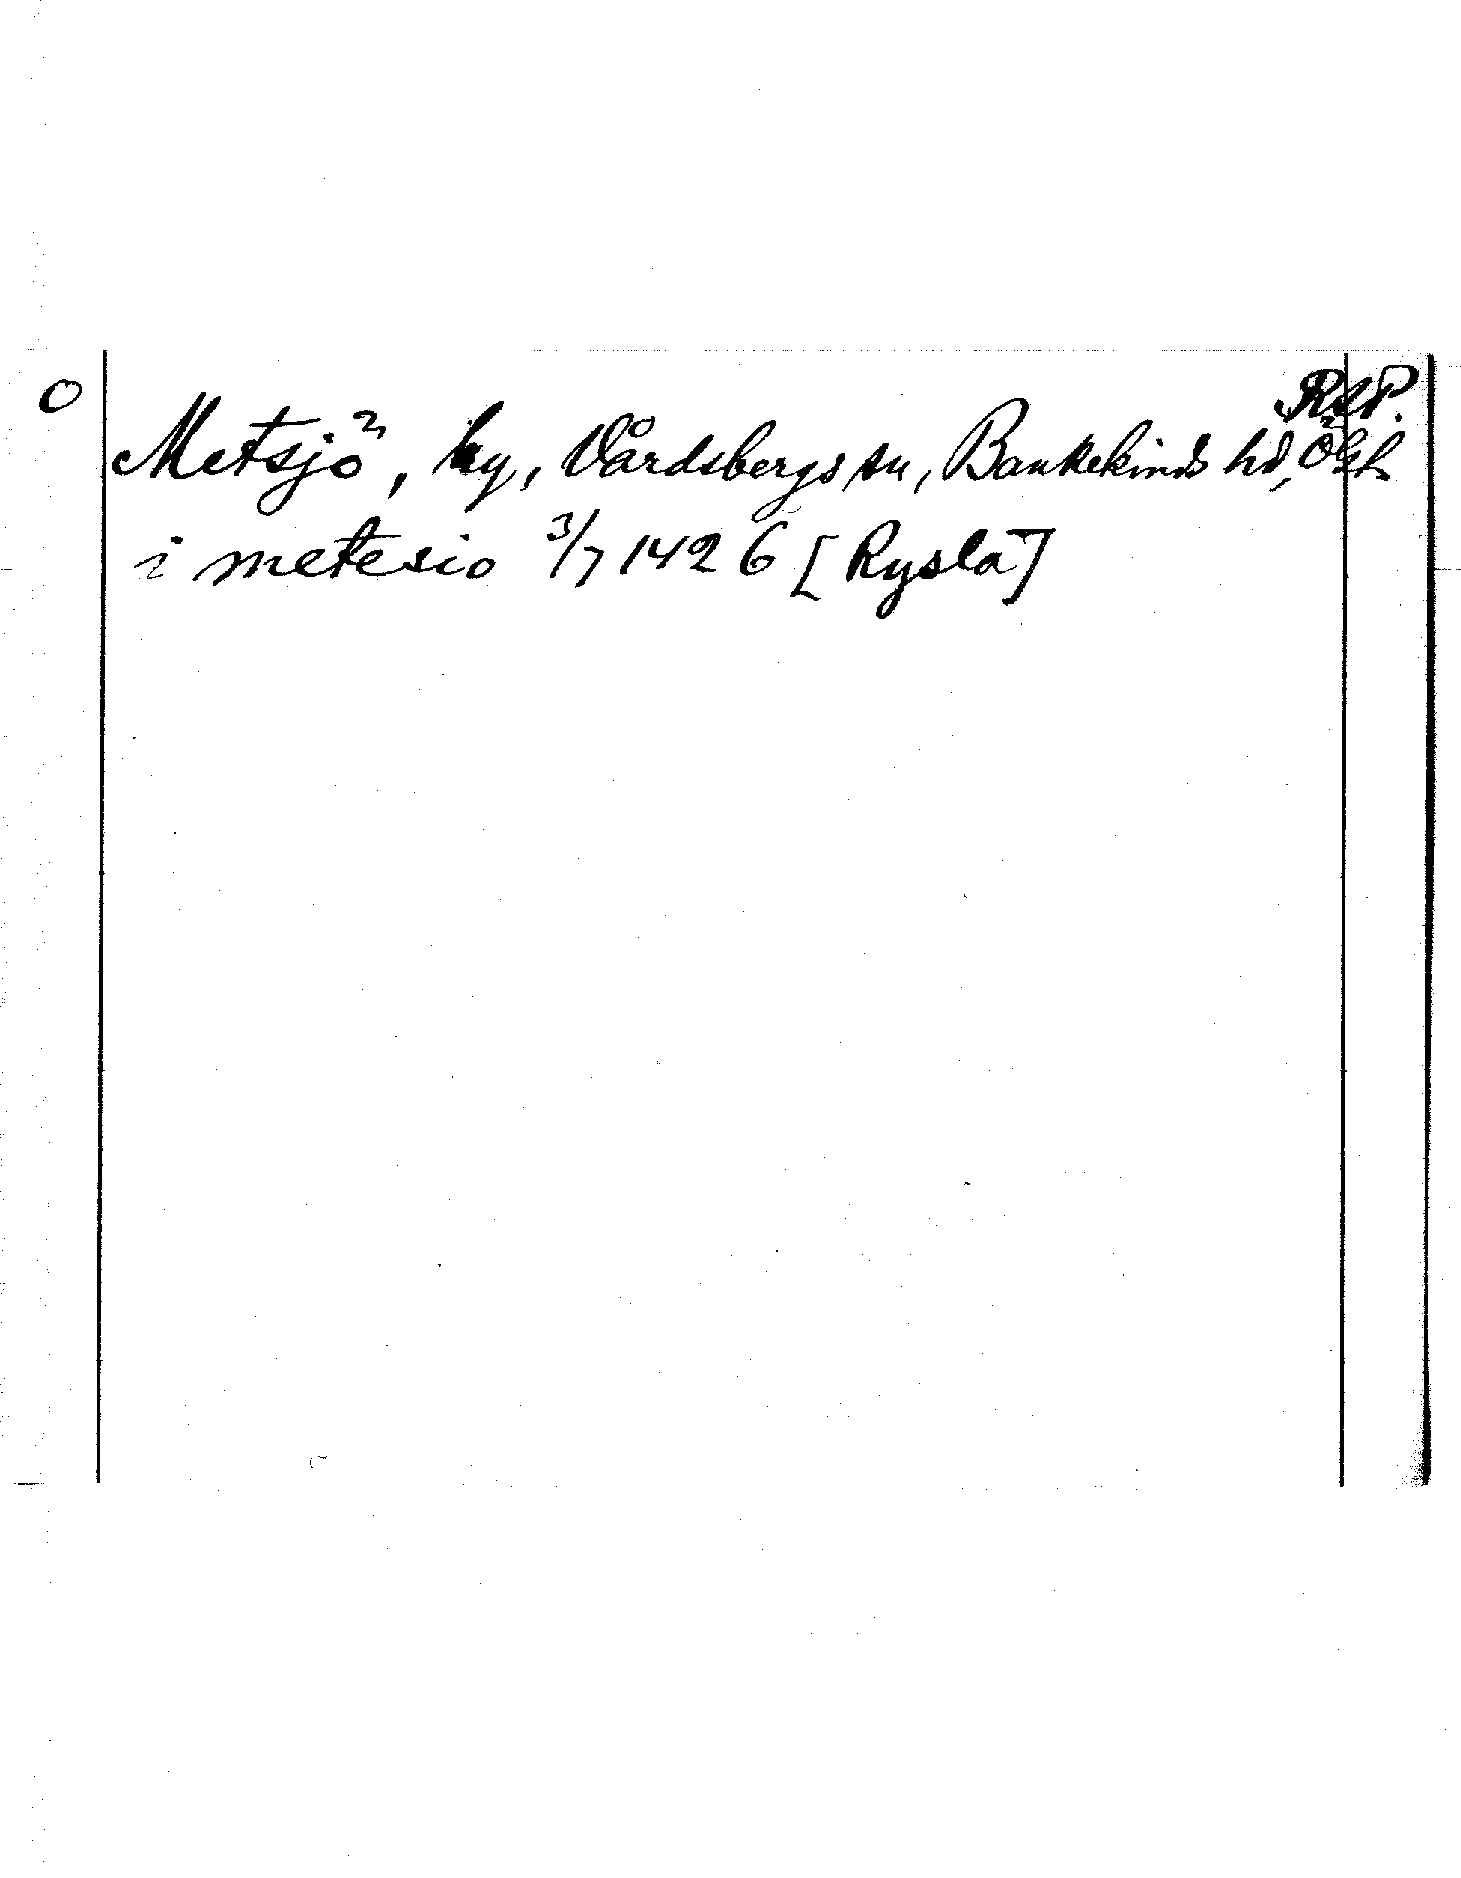 O
RAP.
Metsjö, by, Vårdsbergs sn, Bankekinds hd, Ögl
i metesio 3/7 1426 [Rysla]